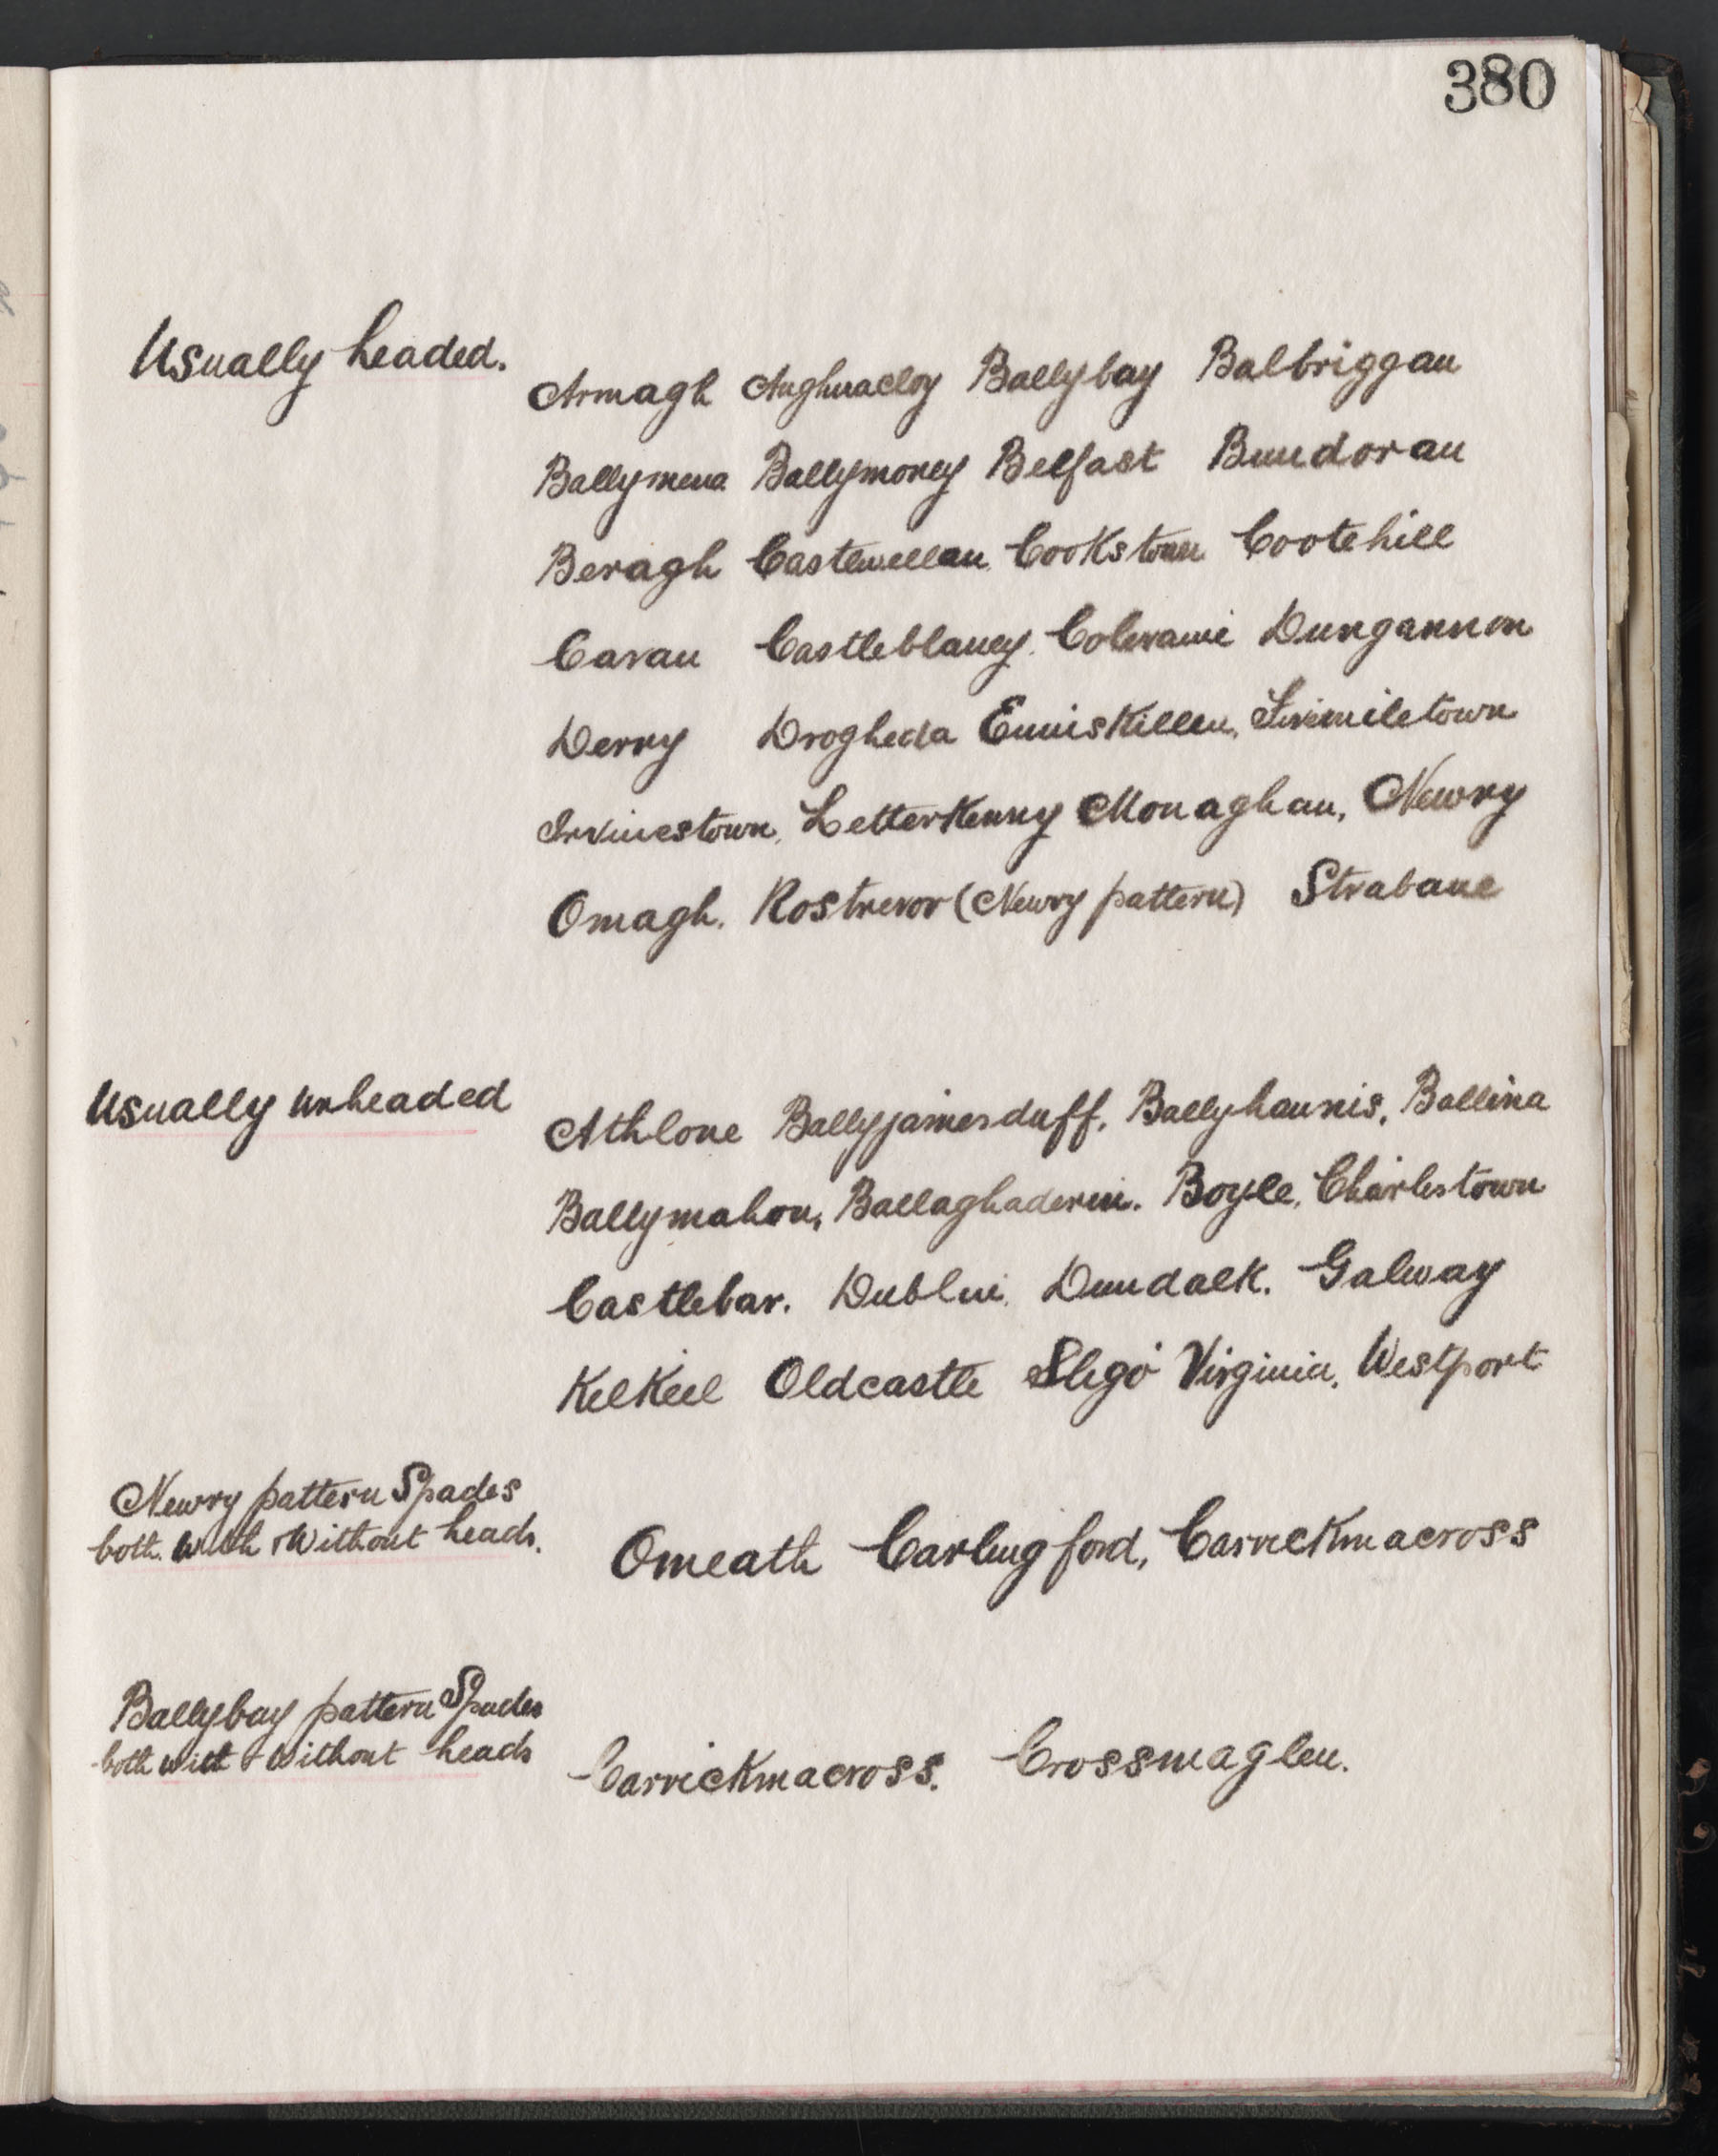 380
Usually headed.
Armagh Aughnacloy Ballybay Balbriggan
Ballymena Ballymoney Belfast Bundoran
Beragh Castlewellan, Cookstown Cootehill
Cavan Castleblaney. Coleraine Dungannon
Derry Drogheda Enniskillen, Fivemiletown
Irvinestown, Letterkenny Monaghan, Newry
Omagh. Rostrevor (Newry pattern) Strabane
Usually unheaded
Athlone Ballyjamesduff, Ballyhaunis, Ballina
Ballymahon, Ballaghaderin. Boyle, Charlestown
Castlebar. Dublin, Dundalk. Galway
Kilkeel Oldcastle Sligo Virginia, Westport
Newry pattern Spades
both with & without heads.
Omeath Carlingford, Carrickmacross
Ballybay pattern Spades
both with & without heads
Carrickmacross. Crossmaglen.